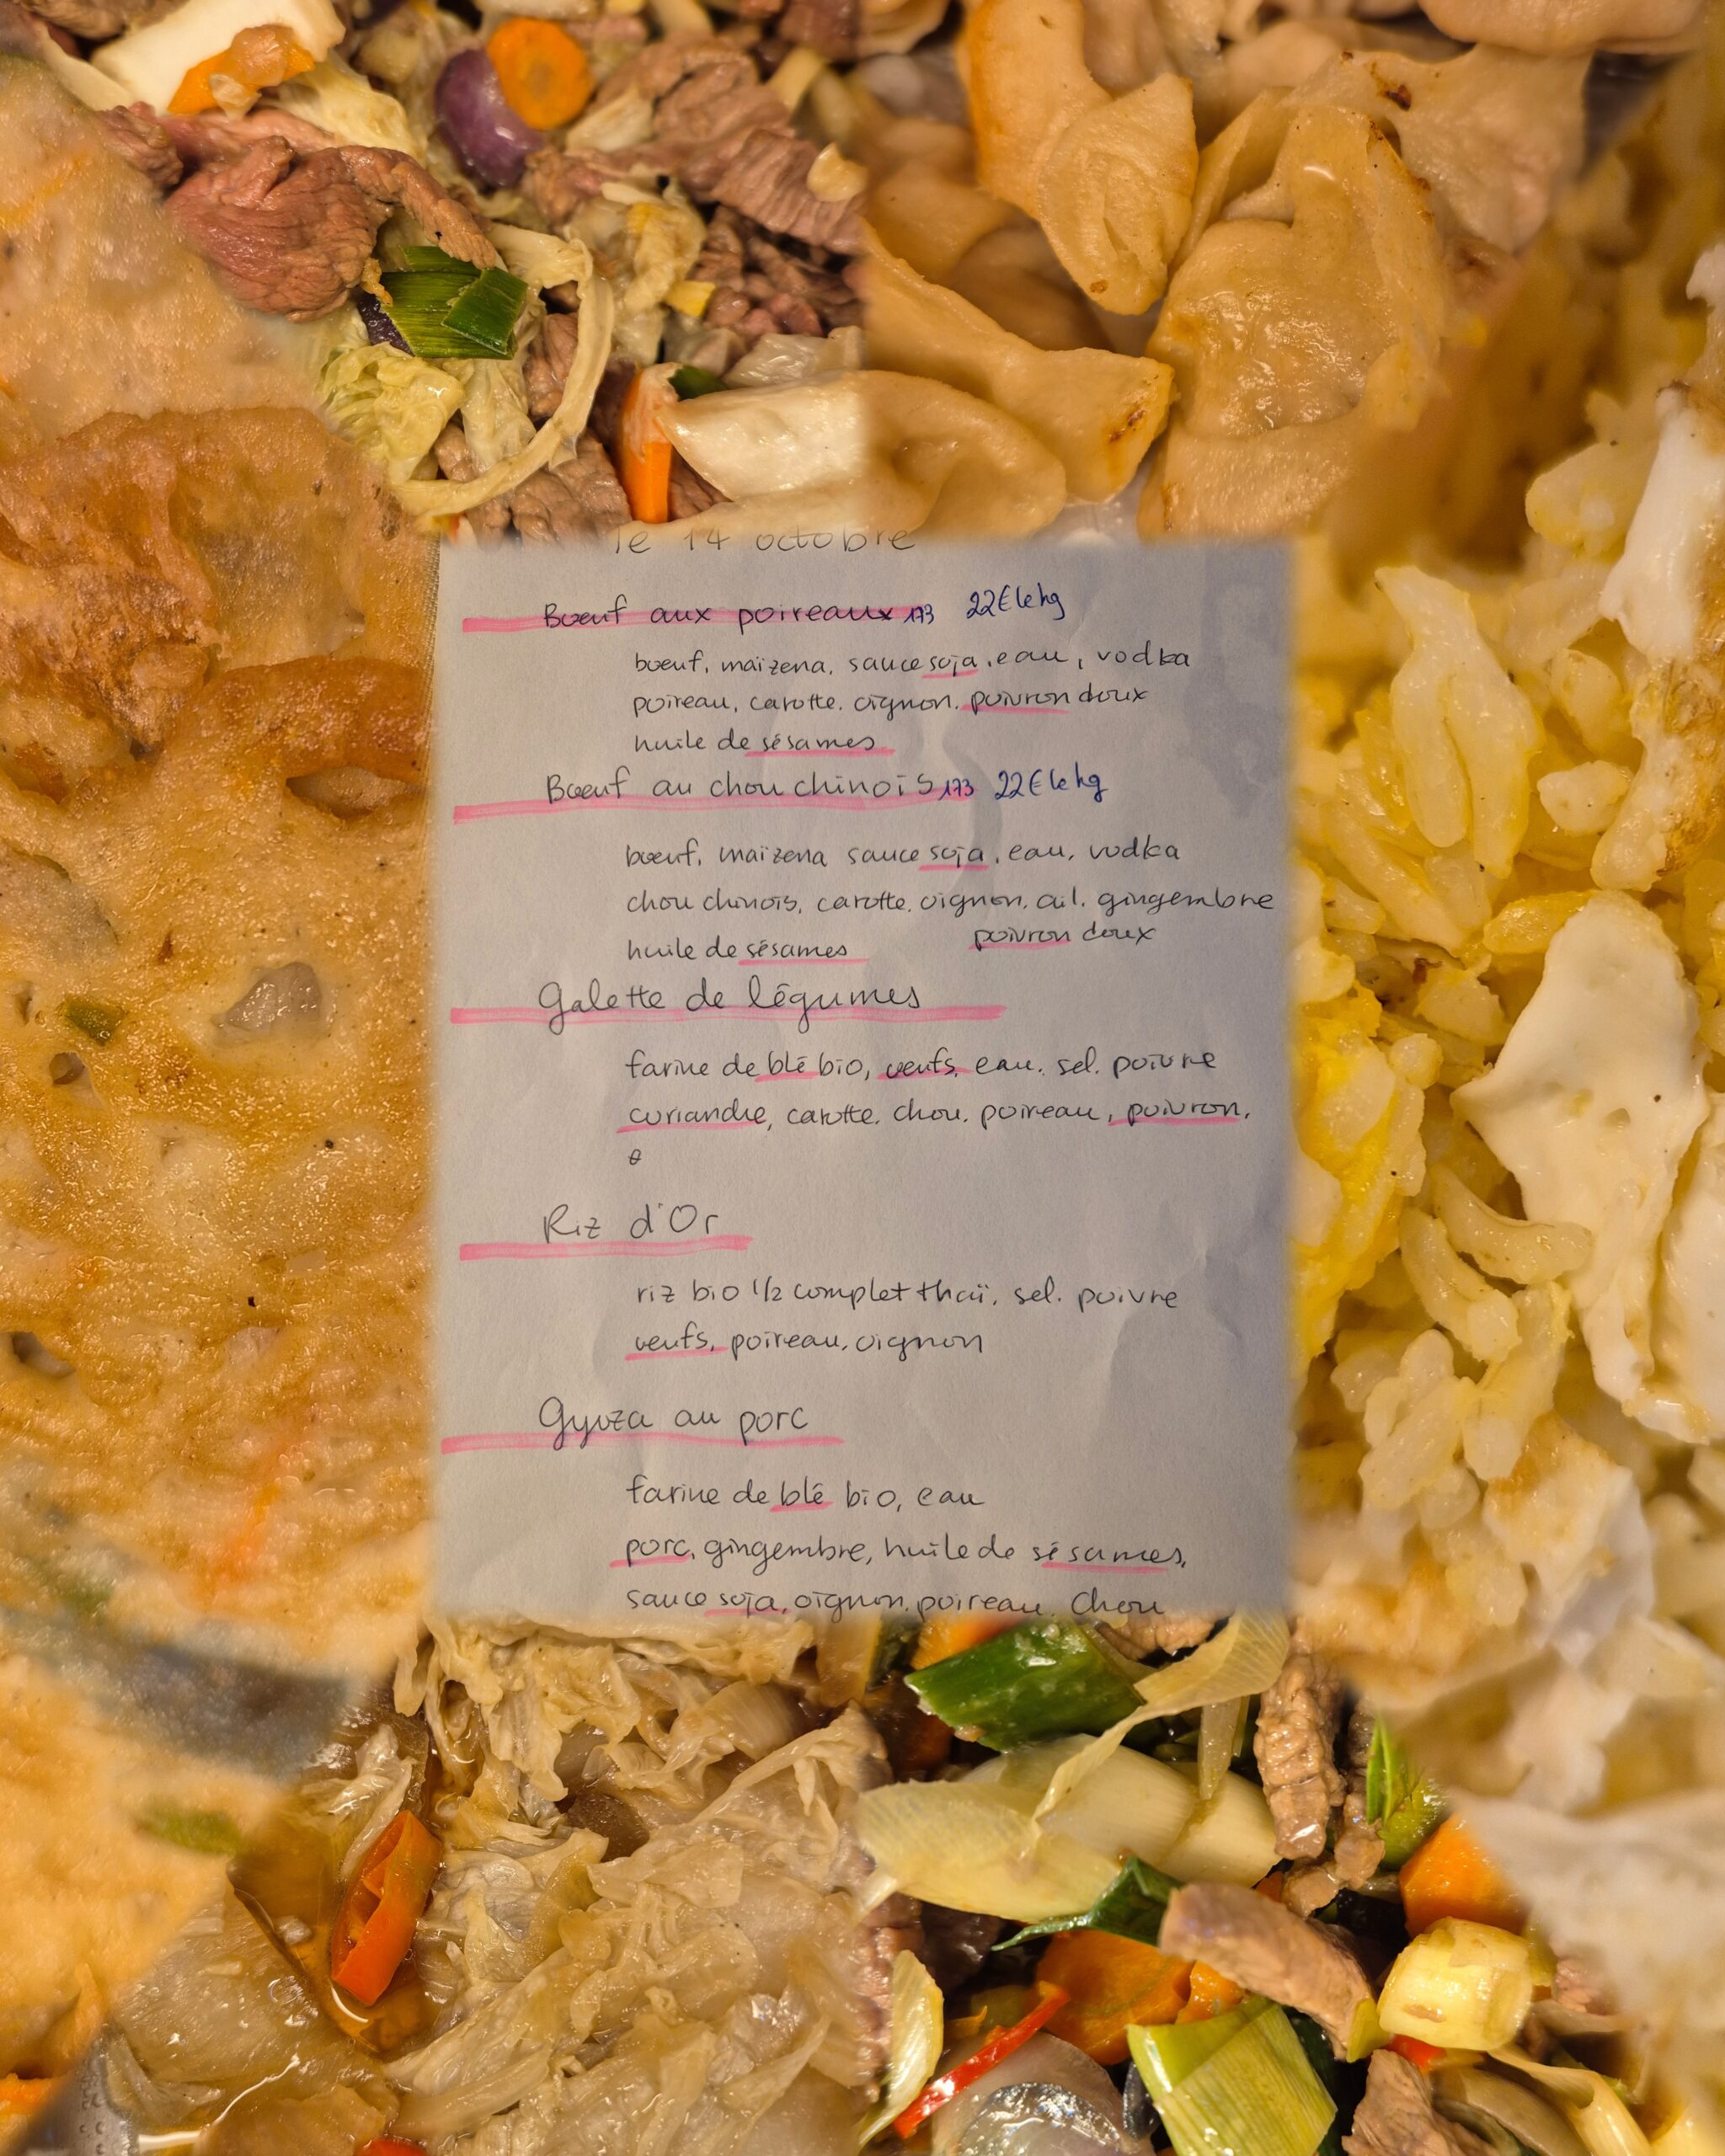 le 14 octobre
Bœuf aux poireaux 173 22€ le kg
bœuf, maïzena, sauce soja, eau, vodka
poireau, carotte, oignon, poivron doux
huile de sésames
Bœuf au chou chinois 173 22€ le kg
bœuf, maïzena sauce soja, eau, vodka
chou chinois, carotte, oignon, ail, gingembre
huile de sésames poivron doux
Galette de légumes
farine de blé bio, œufs, eau, sel, poivre
coriandre, carotte, chou, poireau, poivron,
Riz d'Or
riz bio 1/2 complet thaï, sel, poivre
œufs, poireau, oignon
Gyoza au porc
farine de blé bio, eau
porc, gingembre, huile de sésames,
sauce soja, oignon, poireau, chou